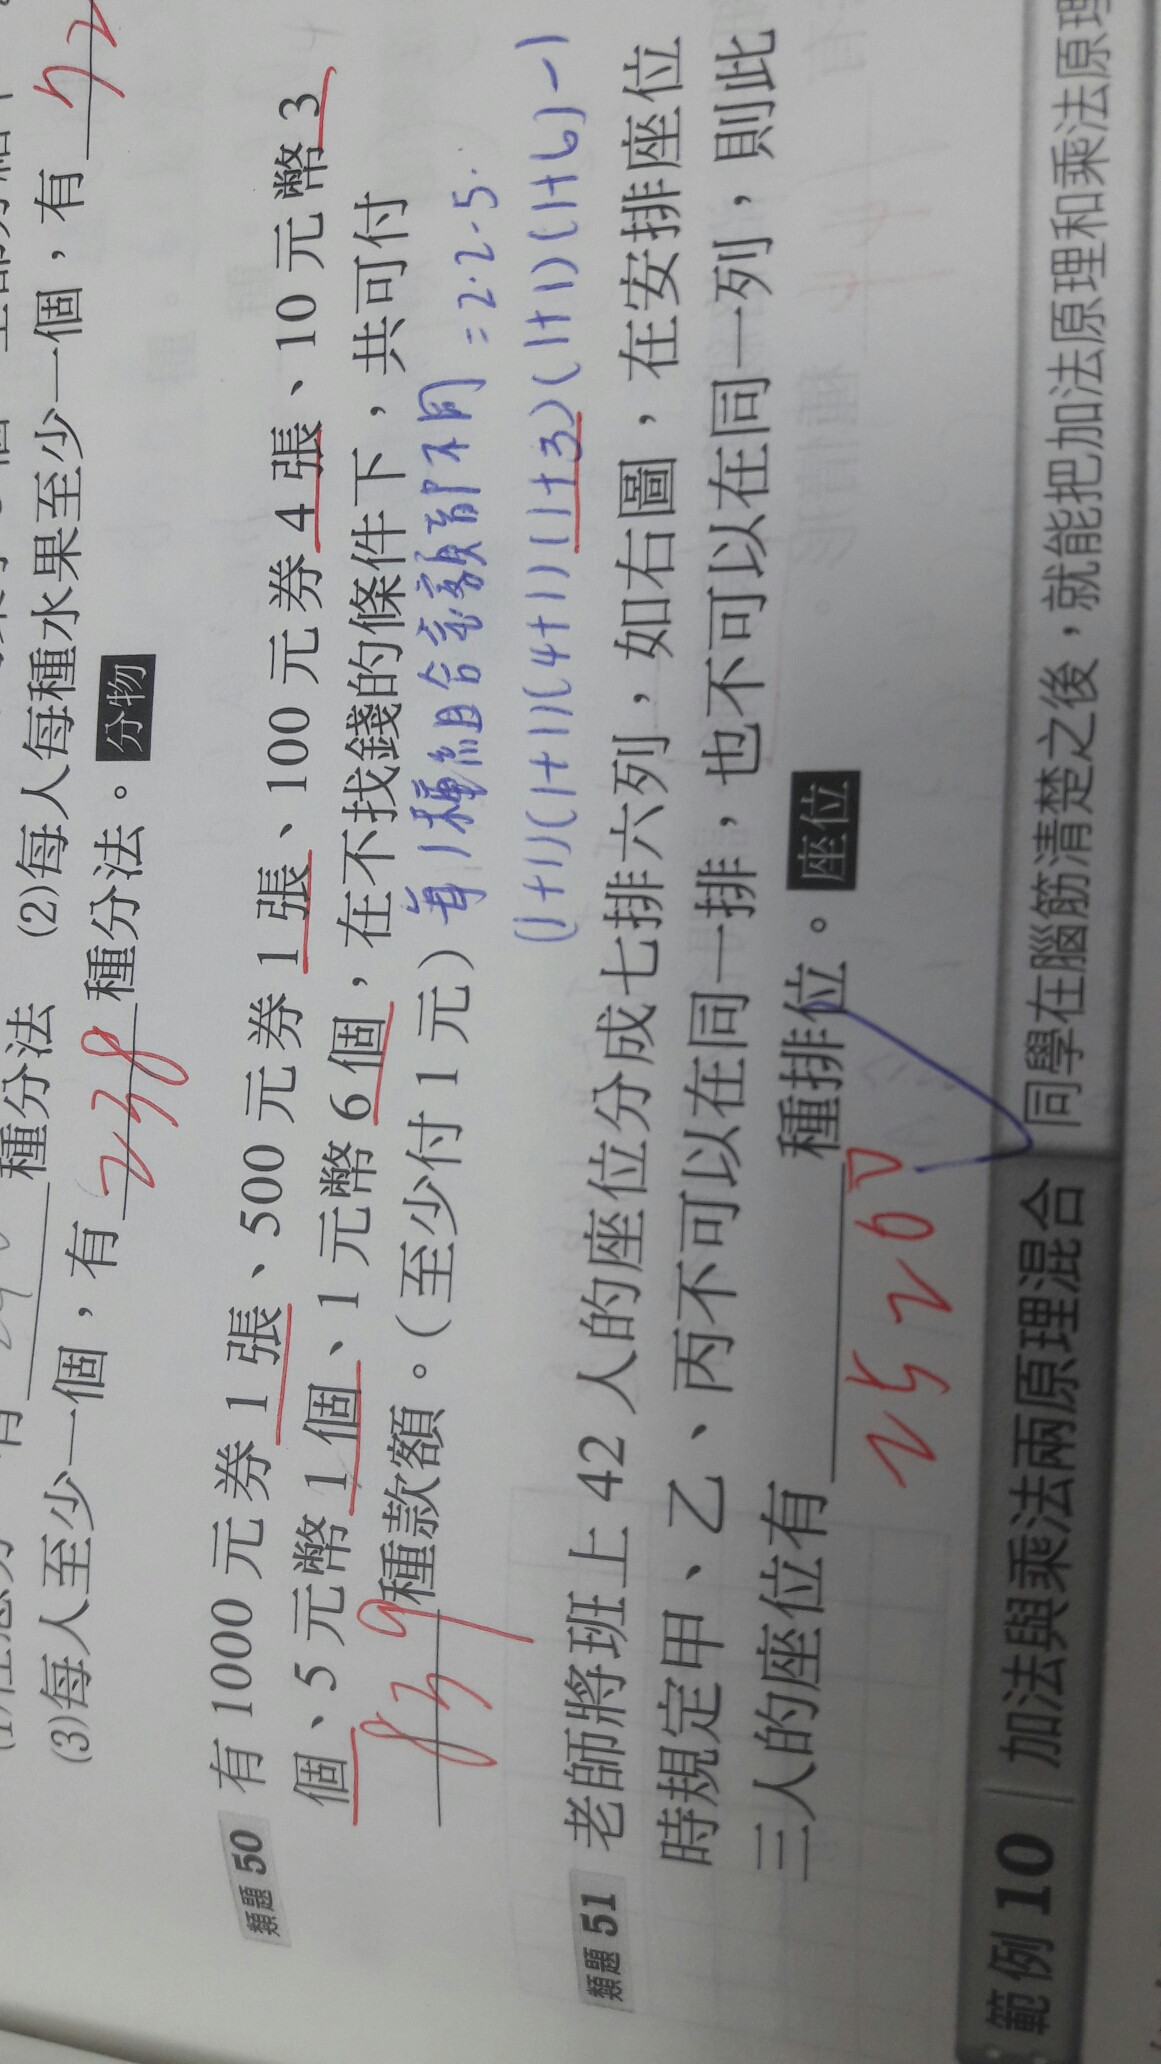 種分法 (2)每人每種水果至少一個，有 72
(3)每人至少一個，有 238 種分法。 分物
類題 50 有 1000 元券 1 張、500 元券 1 張、100 元券 4 張、10 元幣 3
個、5 元幣 1 個、1 元幣 6 個，在不找錢的條件下，共可付
839 種款額。（至少付 1 元） 每1種組合金額都不同 =2.2-5.
(1+1)(1+1)(4+1)(1+3)(1+1)(1+6)-1
類題 51 老師將班上 42 人的座位分成七排六列，如右圖，在安排座位
時規定甲、乙、丙不可以在同一排，也不可以在同一列，則此
三人的座位有 25200 種排位。 座位
範例 10 加法與乘法兩原理混合 同學在腦筋清楚之後，就能把加法原理和乘法原理